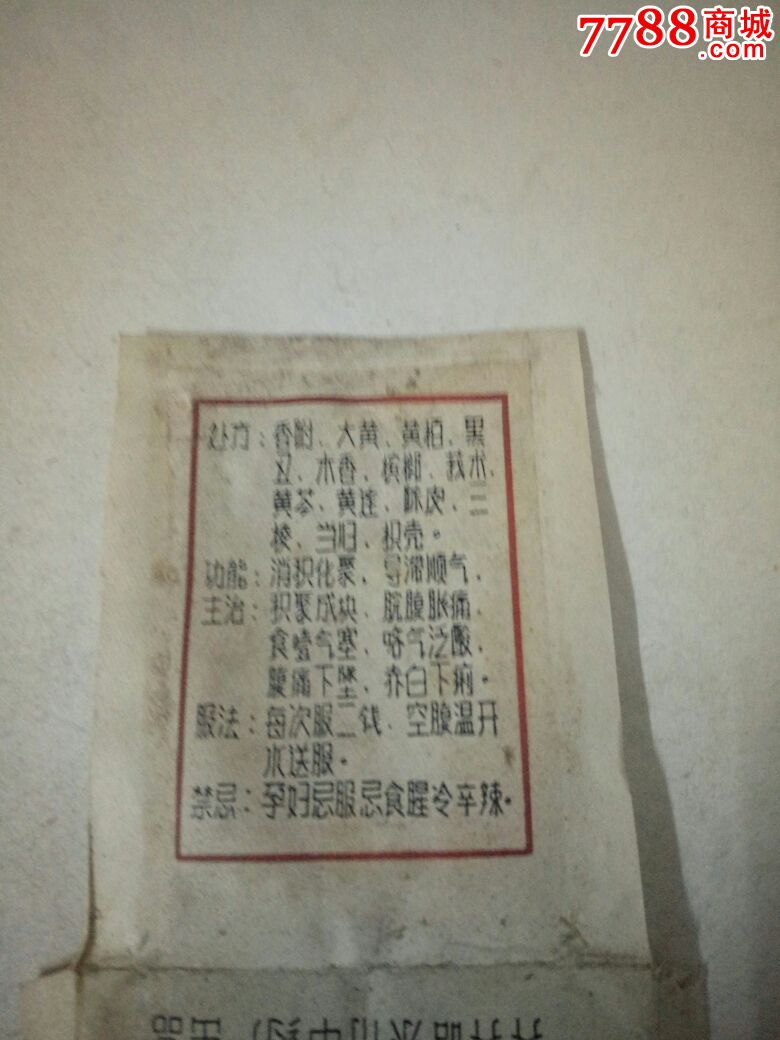 7788商城
.com
处方:香附、大黄、黄柏、黑
丑、木香、槟榔、莪术、
黄芩、黄连、陈皮、三
棱、当归、枳壳。
功能:消积化聚、导滞顺气、
主治:积聚成块、脘腹胀痛、
食噎气塞、咯气泛酸、
腹痛下坠、赤白下痢。
服法:每次服二钱、空腹温开
水送服。
禁忌:孕妇忌服忌食腥冷辛辣。